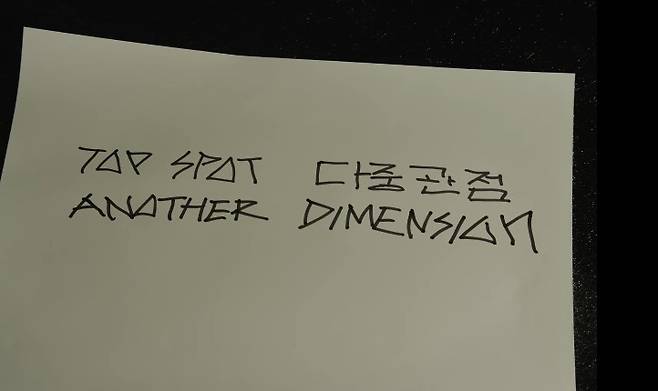 TOP SPOT 다중관점
ANOTHER DIMENSION